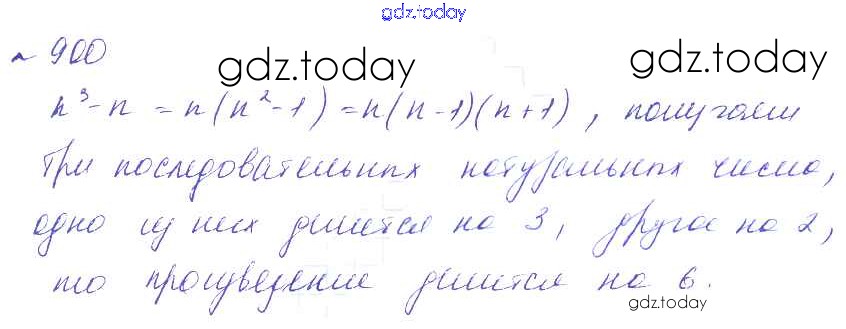 gdz.today
№ 900
gdz.today gdz.today
n³-n = n(n²-1) = n(n-1)(n+1), получаем
три последовательных натуральных числа,
одно из них делится на 3, другое на 2,
то произведение делится на 6.
gdz.today